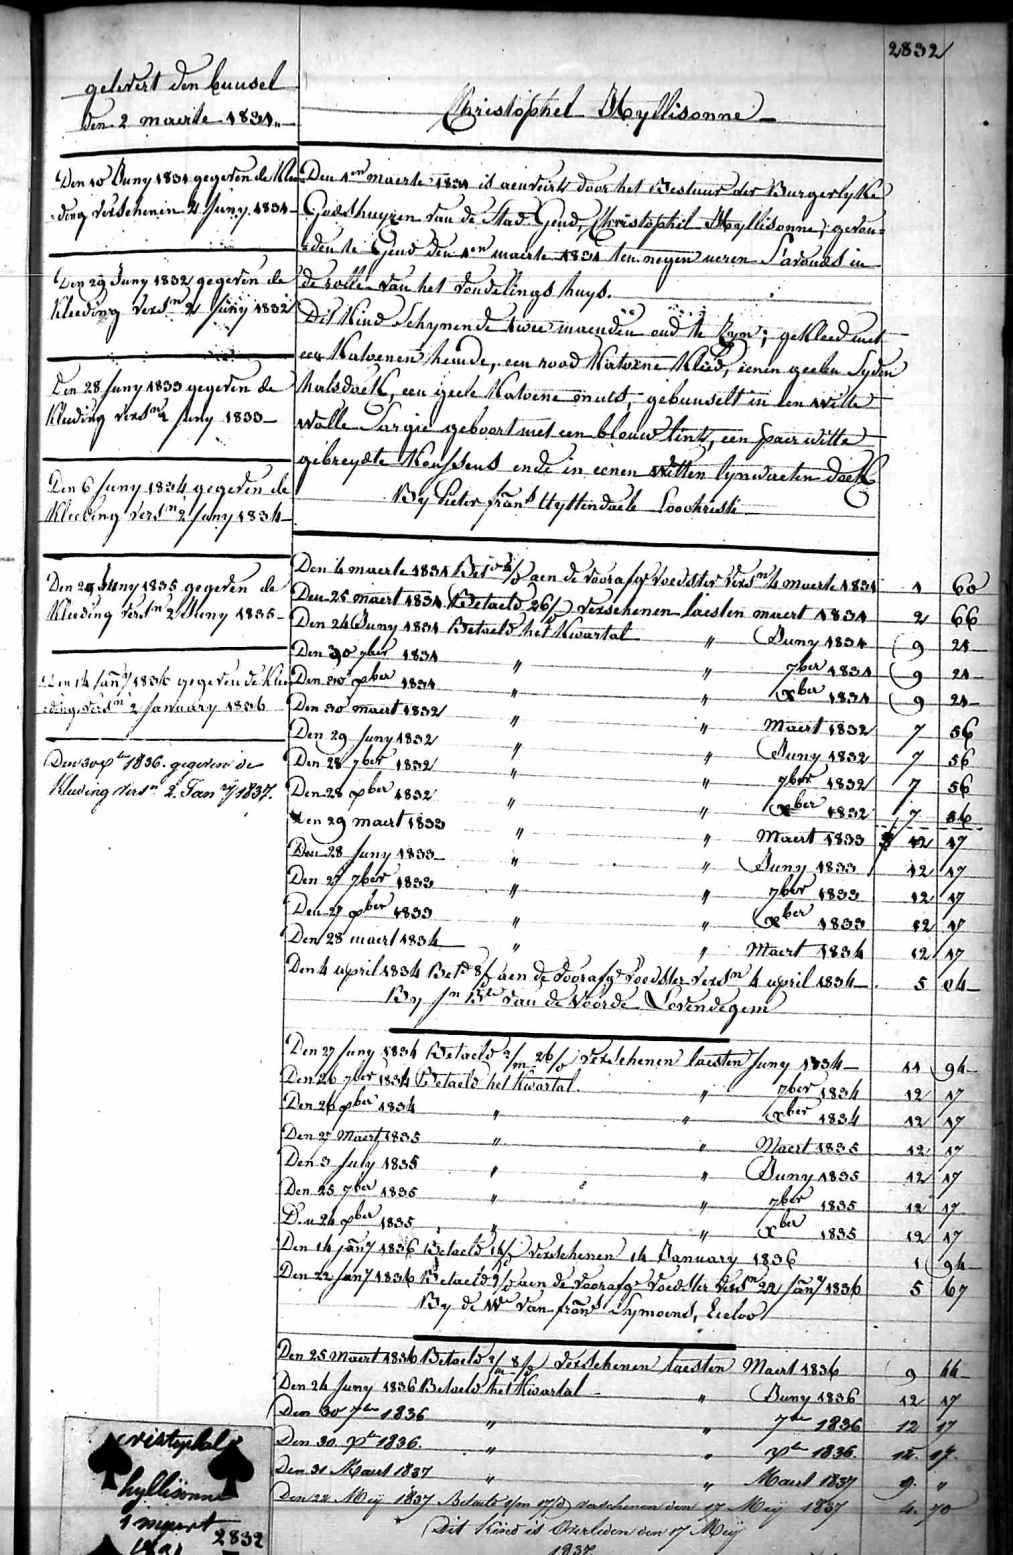 2832
gelevert den buusel
den 2 maerte 1831.
Christophel Hyllisonne
Den 10 Juny 1831 gegeven de klee
ding verschenen 2 Juny 1831
Den 29 Juny 1832 gegeven de
kleeding versn 2 Juny 1832
Den 28 Juny 1833 gegeven de
kleeding versn 2 Juny 1833
Den 6 Juny 1834 gegeven de
kleeding versn 2 Juny 1834
Den 29 Juny 1835 gegeven de
kleeding versn 2 Juny 1835
Den 14 Jany 1836 gegeven de klee
ding versn 2 January 1836
Den 30 xbr 1836. gegeven de
kleeding versn 2. Jany 1837.
Den 1en maerte 1831 is aenveirt door het Bestuur der Burgerlyke
Godshuyzen van de Stad Gend, Christophel Hyllisonne; gevon-
den te Gend den 1en maerte 1831 ten negen ueren s'avonds in
de rolle van het vondelings huys.
Dit Kind schynende twee maenden oud te zyn; gekleed met
een Katoenen hemde, een rood Katoene kleed, eenen geelen Syden
halsdoek, een geele Katoene muts, gebuuselt in een witte
wolle Sargie geboort met een blouw lint, een paer witte
gebreyde Koussens ende in eenen witten lynwaeten doek
By Pieter frans Uyttendaele Loochristi
Den 4 maerte 1831 Betd aen de voorafge voedster versn 4 maerte 1831 1 60
Den 25 maert 1831 Betaeld 26/d verschenen laesten maert 1831 2 66
Den 24 Juny 1831 Betaeld het Kwartal " Juny 1831 9 21
Den 30 7ber 1831 " " 7ber 1831 9 21
Den 30 xber 1831 " " xber 1831 9 21
Den 30 maert 1832 " " Maert 1832 7 56
Den 29 Juny 1832 " " Juny 1832 7 56
Den 28 7ber 1832 " " 7ber 1832 7 56
Den 28 xber 1832 " " xber 1832 7 56
Den 29 maert 1833 " " Maert 1833 12 17
Den 28 Juny 1833 " " Juny 1833 12 17
Den 27 7ber 1833 " " 7ber 1833 12 17
Den 27 xber 1833 " " xber 1833 12 17
Den 28 maert 1834 " " Maert 1834 12 17
Den 4 april 1834 Betd 8/d aen de voorafge voedster versn 4 april 1834 5 04
By Jn Bte van de Voorde Lovendegem
Den 27 Juny 1834 Betaeld 2/m 26/d verschenen laesten Juny 1834 11 94
Den 26 7ber 1834 Betaeld het Kwartal " 7ber 1834 12 17
Den 26 xber 1834 " " xber 1834 12 17
Den 27 Maert 1835 " " Maert 1835 12 17
Den 3 July 1835 " " Juny 1835 12 17
Den 25 7ber 1835 " " 7ber 1835 12 17
Den 24 xber 1835 " " xber 1835 12 17
Den 14 Jany 1836 Betaeld 14/d verschenen 14 January 1836 1 94
Den 22 Jany 1836 Betaeld aen de voorafge voedster versn 22 Jany 1836 5 67
By de We van frans Symoens, Eecloo
Den 25 Maert 1836 Betaeld 2/m 8/d verschenen laesten Maert 1836 9 44
Den 24 Juny 1836 Betaeld het Kwartal " Juny 1836 12 17
Den 30 7br 1836 " " 7br 1836 12 17
Den 30. xbr 1836. " " xbr 1836. 12. 17.
Den 31 Maert 1837 " " Maert 1837 9. "
Den 22 Meÿ 1837 Betaeld 1/m 17/d verschenen den 17 Meÿ 1837 4. 70
Dit Kind is Overleden den 17 Meÿ
1837.
cristophel
hyllisonne
1 maert
1831
2832